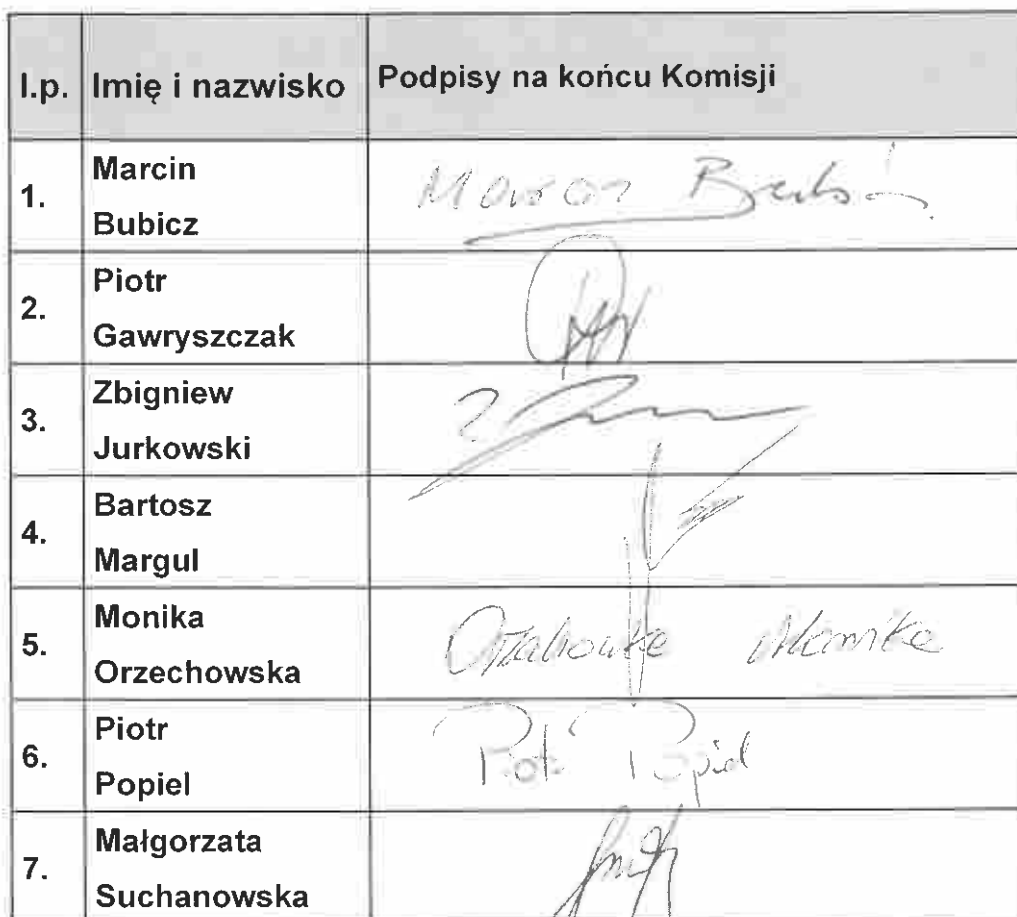 l.p. Imię i nazwisko Podpisy na końcu Komisji
1. Marcin
Bubicz
Bubicz
2. Piotr
Gawryszczak
3. Zbigniew
Jurkowski
4. Bartosz
Margul
5. Monika
Orzechowska
Monika
6. Piotr
Popiel
Piotr Popiel
7. Małgorzata
Suchanowska